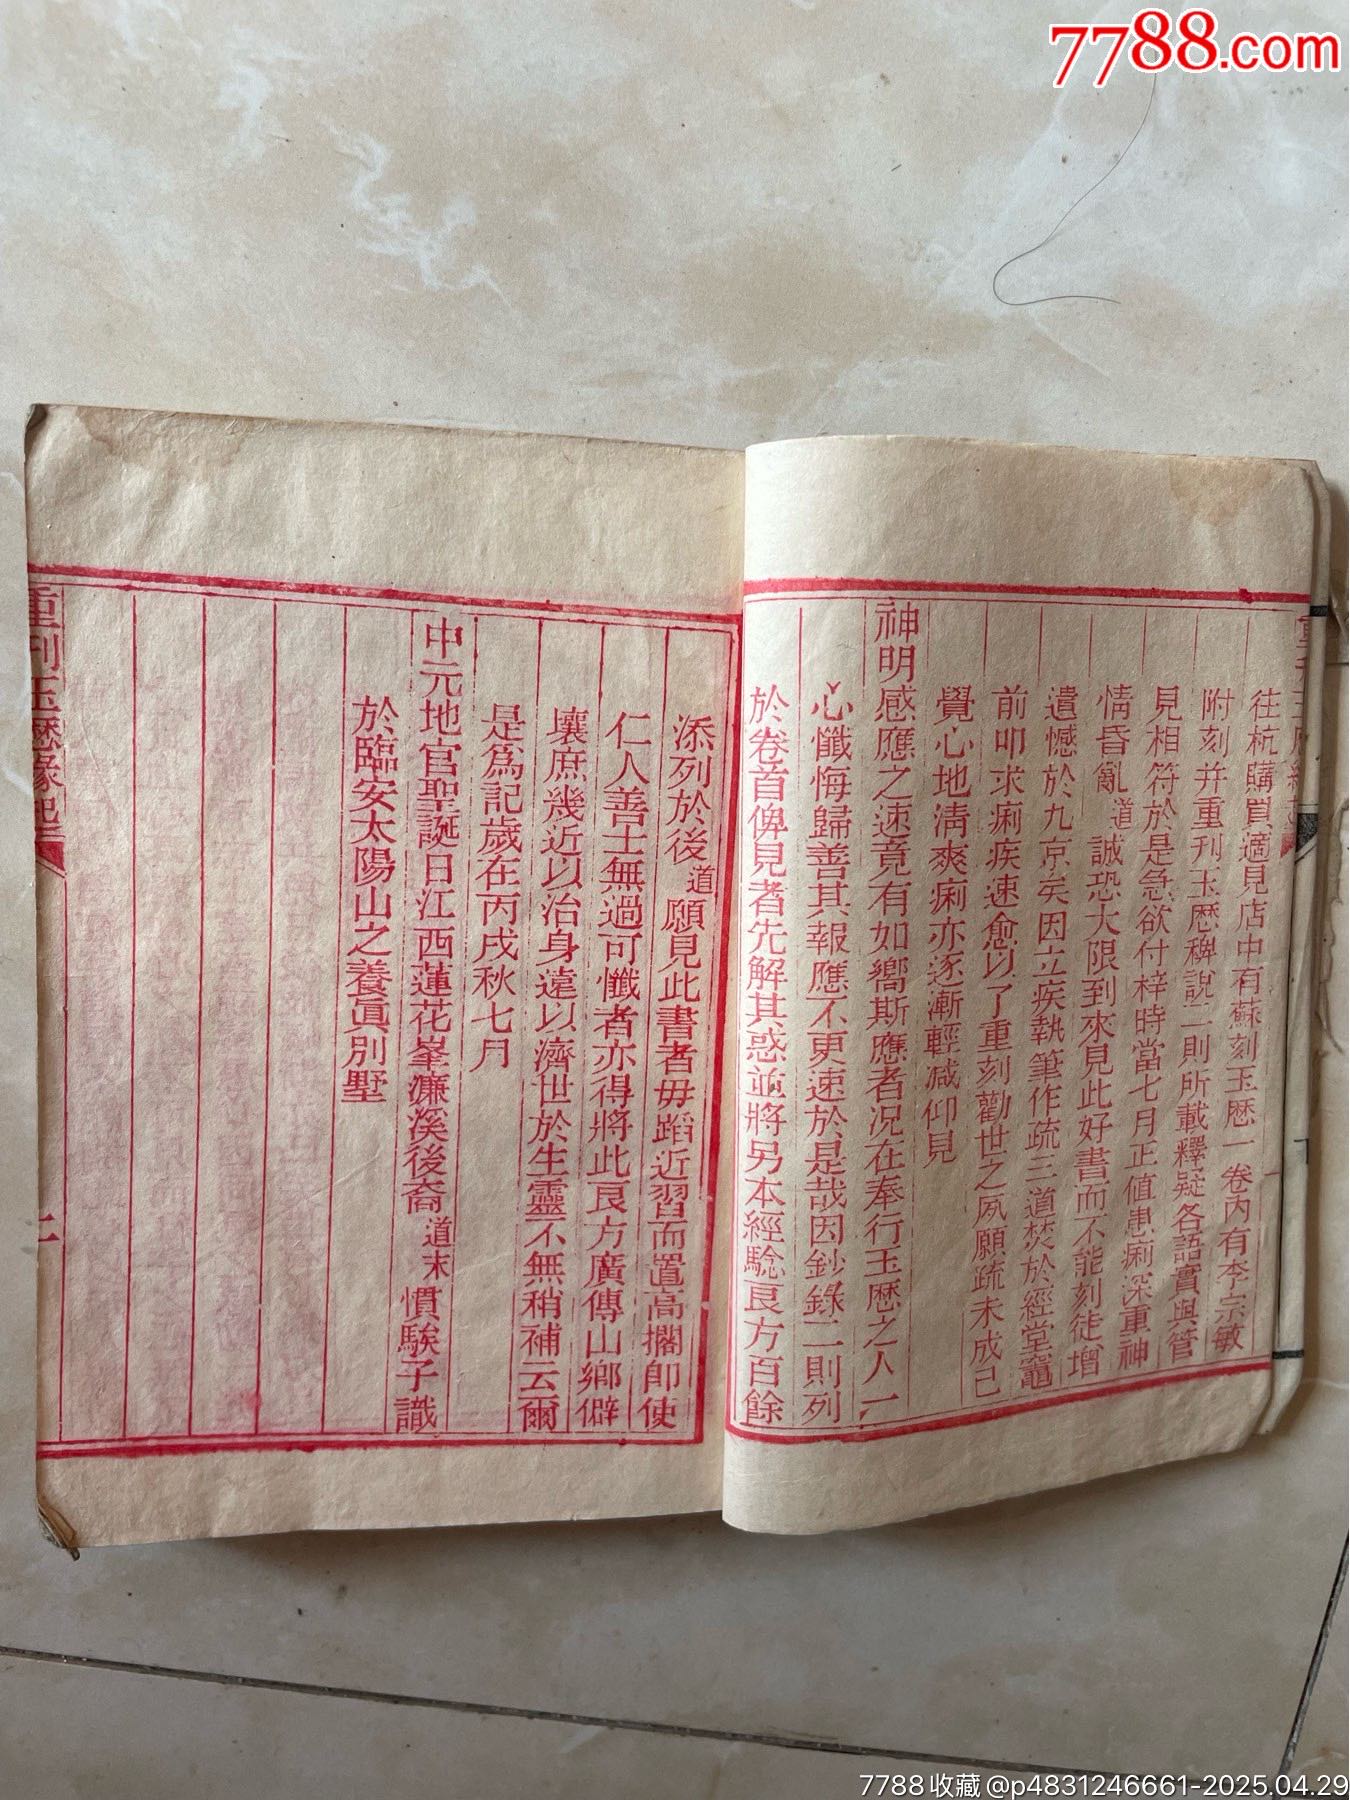 7788.com
往杭購買適見店中有蘇刻玉歷一卷內有李宗敏
附刻并重刊玉歷稗說二則所載釋疑各語實與管
見相符於是急欲付梓時當七月正值患痢深重神
情昏亂道誠恐大限到來見此好書而不能刻徒增
遺憾於九京矣因立疾執筆作疏三道焚於經堂竈
前叩求痢疾速愈以了重刻勸世之夙願疏未成已
覺心地清爽痢亦逐漸輕減仰見
神明感應之速竟有如嚮斯應者况在奉行玉歷之人一
心懺悔歸善其報應不更速於是哉因鈔錄二則列
於卷首俾見者先解其惑並將另本經驗良方百餘
添列於後道願見此書者毋蹈近習而置高擱即使
仁人善士無過可懺者亦得將此良方廣傳山鄉僻
壤庶幾近以治身遠以濟世於生靈不無稍補云爾
是為記歲在丙戌秋七月
中元地官聖誕日江西蓮花峯濂溪後裔道末慣騃子識
於臨安太陽山之養眞別墅
重刊玉歷緣起
二
7788收藏@p4831246661-2025.04.29